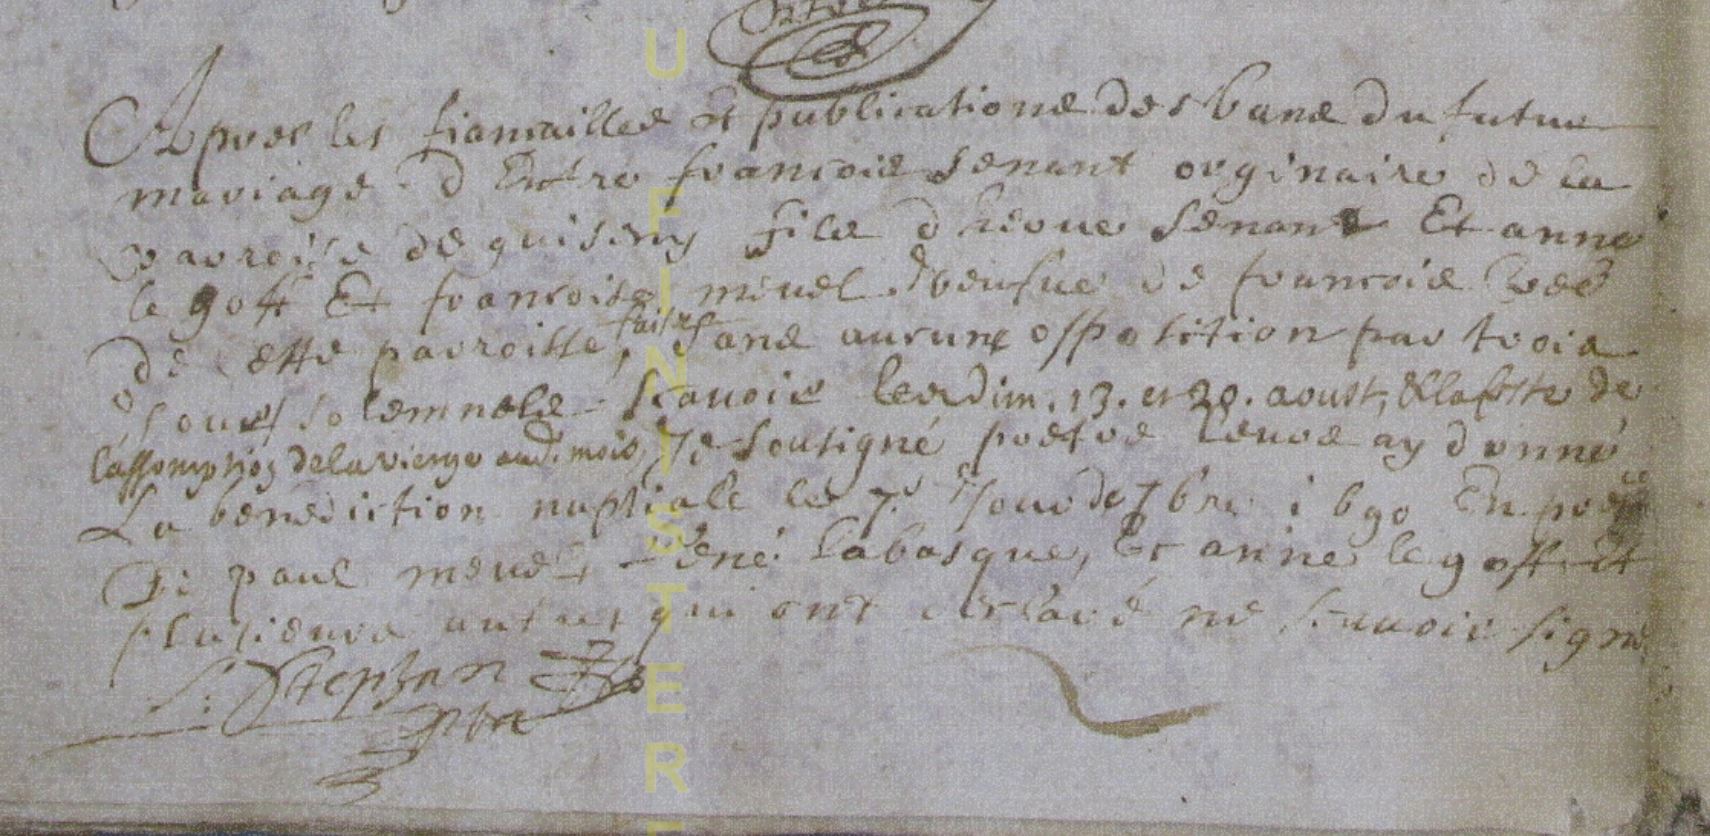 Apres les fiancailles et publications des bans du futur
mariage d'Entre francois senant orginaire de la
parroisse de guiseny fils d'hervé senant Et anne
le goff Et francoise menel veusve de francois
de cette parroisse, faites sans aucune opposition par trois
jours solemnels scavoir les dim. 13. et 20. aoust, & la feste de
l'assomption de la vierge aud. mois, Je soussigné prestre ay donné
La benediction nuptiale le 7.e jour de 7bre 1690 En pre
de paul menel, René labasque, Et anne le goff et
plusieurs autres qui ont declaré ne scavoir signe
S: Stephan
pbre
FINISTER